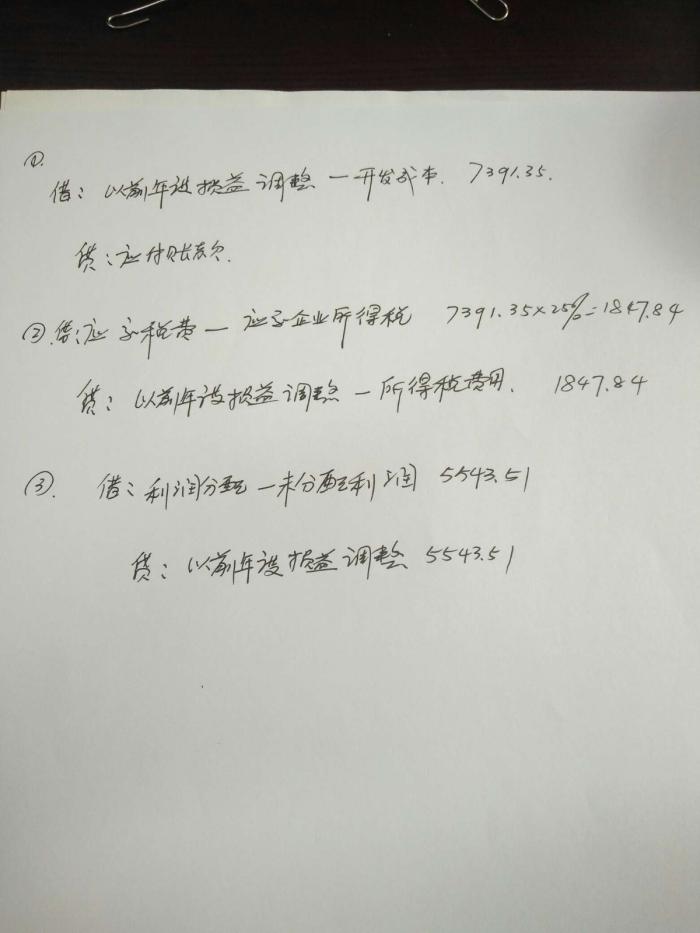 ①.
借：以前年度损益调整－开发成本. 7391.35.
贷：应付账款.
②.借：应交税费－应交企业所得税 7391.35×25%=1847.84
贷：以前年度损益调整－所得税费用. 1847.84
③. 借：利润分配－未分配利润 5543.51
贷：以前年度损益调整 5543.51